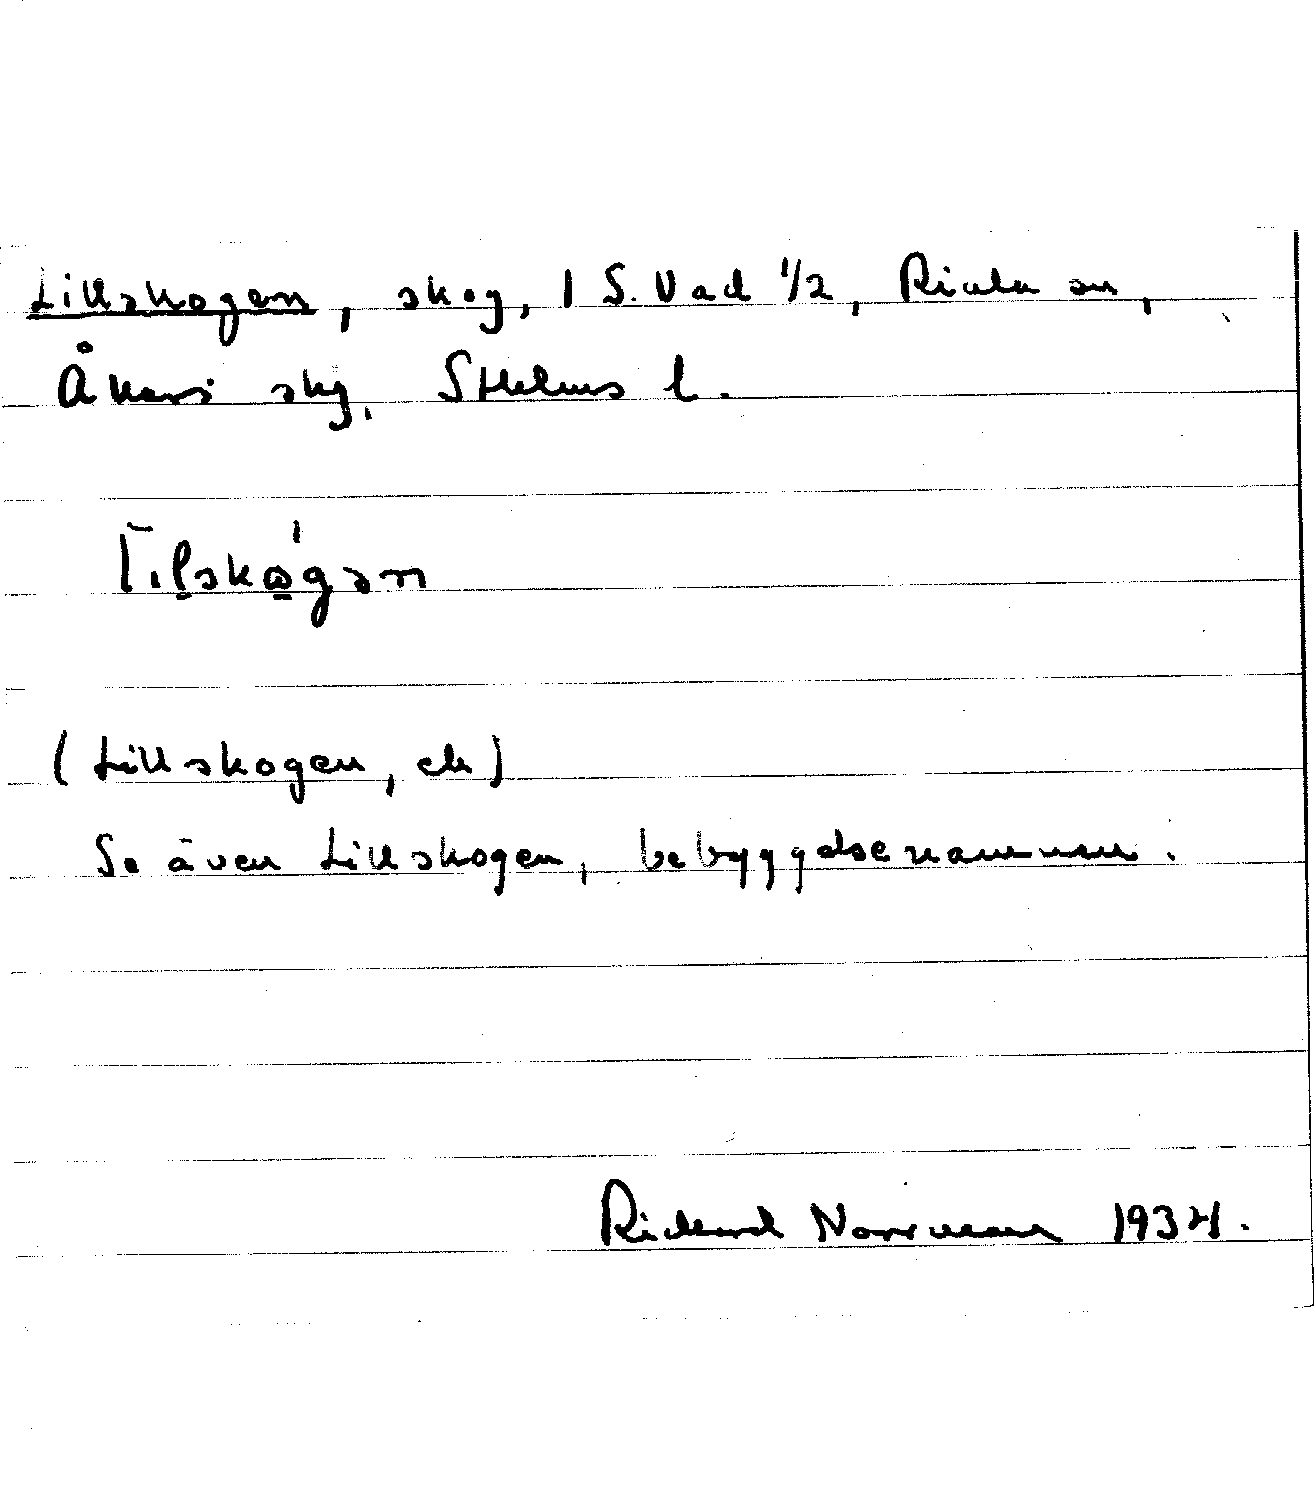 Lillskogen, skog, 1 S. Vad 1/2, Riala sn,
Åkers skg, Sthlms l.
(Lillskogen, ek)
Se även Lillskogen, bebyggelsenamnen.
Richard Norrman 1934.